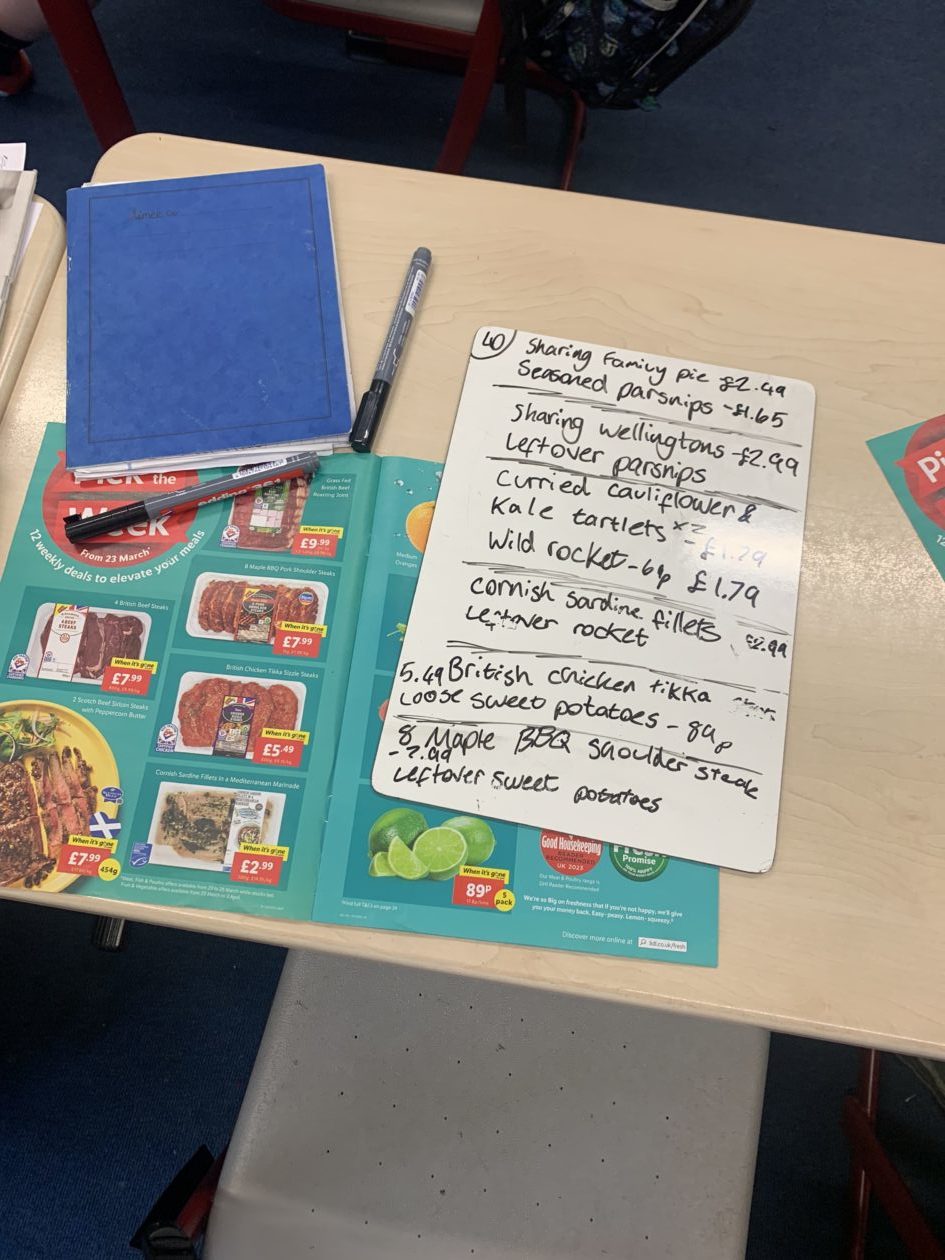 40
Sharing Family pie £2.49
Seasoned parsnips - £1.65
Sharing wellingtons - £2.99
Leftover parsnips
Curried cauliflower &
Kale tartlets x2
- £1.79
wild rocket - 61p £1.79
cornish sardine fillets £2.99
Leftover rocket
5.49 British chicken tikka
Loose sweet potatoes - 89p
8 Maple BBQ shoulder steak
- 7.99
Leftover sweet potatoes
Pick the
Week
From 23 March
12 weekly deals to elevate your meals
Grass Fed
British Beef
Roasting Joint
When it's gone
£9.99
8 Maple BBQ Pork Shoulder Steaks
When it's gone
£7.99
4 British Beef Steaks
When it's gone
£7.99
British Chicken Tikka Sizzle Steaks
When it's gone
£5.49
2 Scotch Beef Sirloin Steaks
with Peppercorn Butter
When it's gone
£7.99
454g
Cornish Sardine Fillets in a Mediterranean Marinade
When it's gone
£2.99
Medium
Oranges
When it's gone
89P
5
pack
Good Housekeeping
READER
RECOMMENDED
UK 2023
Promise
100% HAPPY
We're so Big on freshness that if you're not happy, we'll give
you your money back. Easy-peasy. Lemon-squeezy.
Discover more online at
lidl.co.uk/fresh
Pi